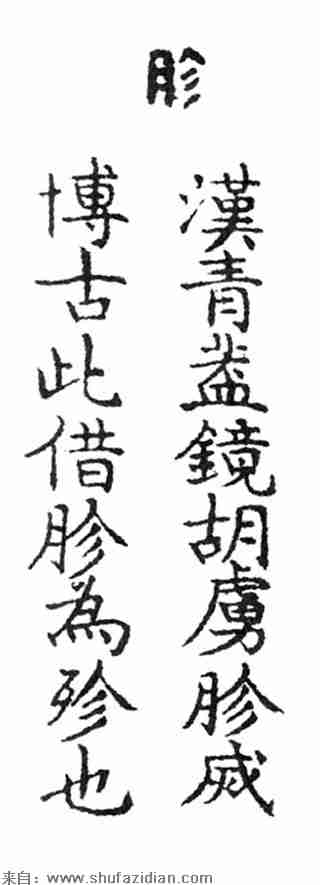 胗
漢青葢鏡胡虜胗烕
博古此借胗為殄也
来自：www.shufazidian.com